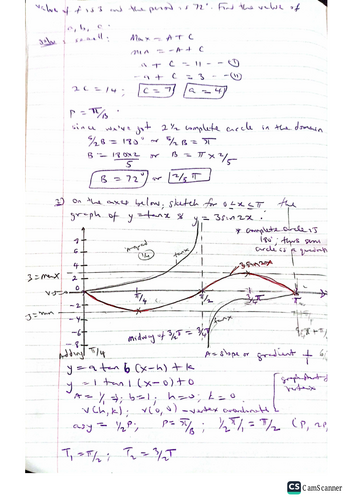 value of f is 3 and the period is 72°. Find the value of
a, b, c.
Max = A + C
min = -A + C
a + C = 11 -- (i)
-a + C = 3 -- (ii)
2C = 14, C = 7 a = 4
P = π/B
since we've got 2½ complete circle in the domain
5/2 B = 180° or 5/2 B = π
B = 180×2/5 or B = π × 2/5
B = 72° or 2/5 π
on the axes below, sketch for 0 ≤ x ≤ π the
graph of y = tanx & y = 3sin2x.
* complete circle is
180°, thus one
circle is a
tanx
3sin2x
3 = max
3 = min
π/4
π/2
3/4π
π
tanx
midway
Adding π/4
A = slope or gradient
y = a tan b (x-h) + k
y = 1 tan 1 (x-0) + 0
b = 1; h = 0; k = 0.
V(h,k); V(0,0) = vertex coordinate
vertex
asy = ½P; P = π/B; ½π/1 = π/2
T₁ = π/2; T₂ = 3/2 π
CS CamScanner